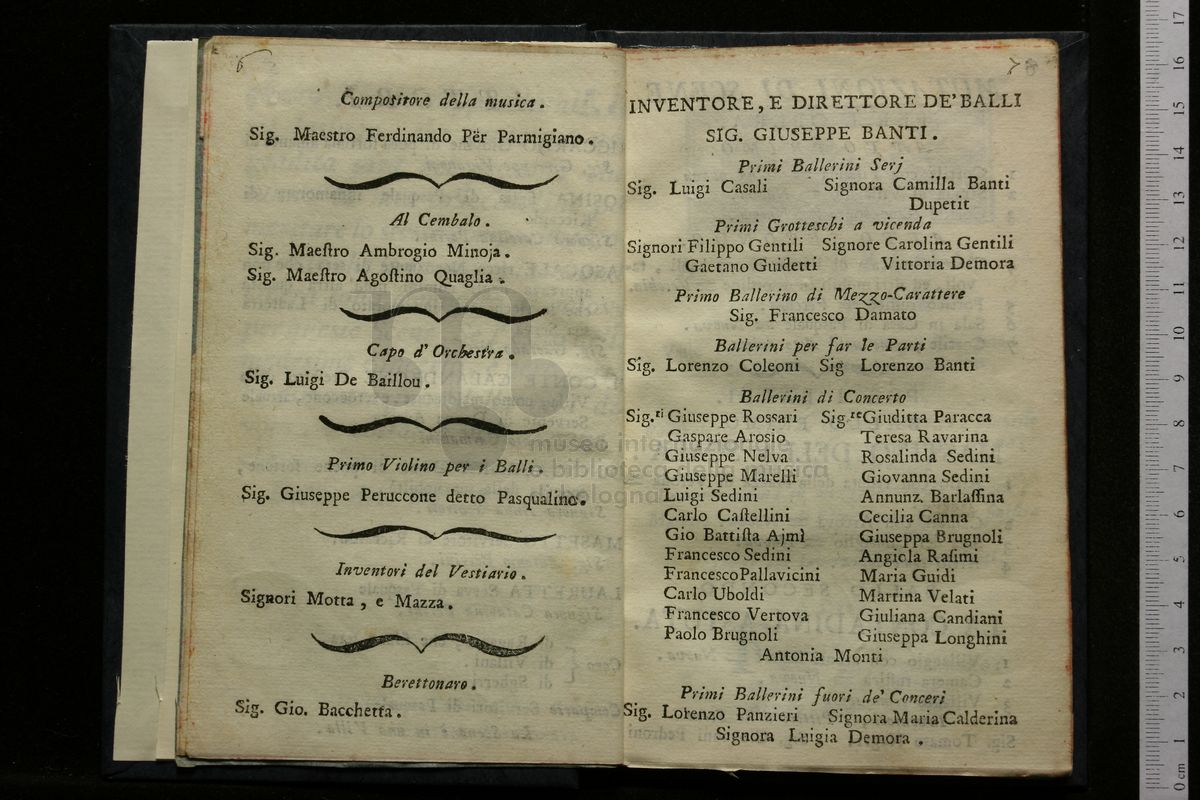 6
Compositore della musica.
Sig. Maestro Ferdinando Për Parmigiano.
Al Cembalo.
Sig. Maeſtro Ambrogio Minoja.
Sig. Maeſtro Agoſtino Quaglia.
Capo d' Orchestra.
Sig. Luigi De Baillou.
Primo Violino per i Balli.
Sig. Giuseppe Peruccone detto Pasqualino.
Inventori del Vestiario.
Signori Motta, e Mazza.
Berettonaro.
Sig. Gio. Bacchetta.
7
INVENTORE, E DIRETTORE DE' BALLI
SIG. GIUSEPPE BANTI.
Primi Ballerini Serj
Sig. Luigi Casali Signora Camilla Banti
Dupetit
Primi Grotteschi a vicenda
Signori Filippo Gentili Signore Carolina Gentili
Gaetano Guidetti Vittoria Demora
Primo Ballerino di Mezzo-Carattere
Sig. Francesco Damato
Ballerini per far le Parti
Sig. Lorenzo Coleoni Sig Lorenzo Banti
Ballerini di Concerto
Sig.ri Giuseppe Rossari Sig.re Giuditta Paracca
Gaspare Arosio Teresa Ravarina
Giuseppe Nelva Rosalinda Sedini
Giuseppe Marelli Giovanna Sedini
Luigi Sedini Annunz. Barlaſſina
Carlo Caſtellini Cecilia Canna
Gio Battiſta Ajmì Giuseppa Brugnoli
Francesco Sedini Angiola Raſimi
Francesco Pallavicini Maria Guidi
Carlo Uboldi Martina Velati
Francesco Vertova Giuliana Candiani
Paolo Brugnoli Giuseppa Longhini
Antonia Monti
Primi Ballerini fuori de' Conceri
Sig. Lorenzo Panzieri Signora Maria Calderina
Signora Luigia Demora.
museo internazionale
biblioteca della musica
di bologna
0 cm 1 2 3 4 5 6 7 8 9 10 11 12 13 14 15 16 17